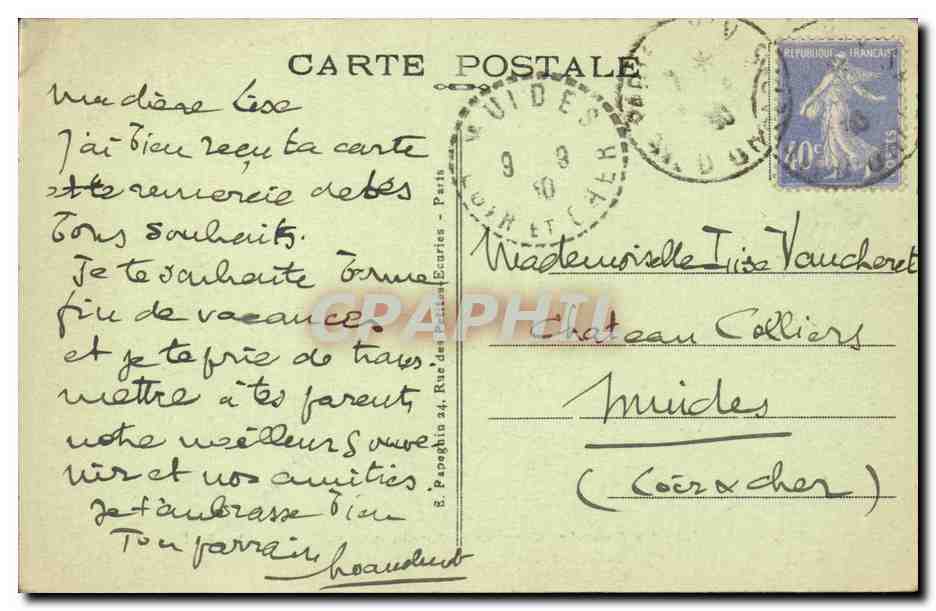 CARTE POSTALE
Ma chère Lise
J'ai bien reçu ta carte
et te remercie de tes
bons souhaits.
Je te souhaite bonne
fin de vacances.
et je te prie de trans-
mettre à tes parents
notre meilleur souve
nir et nos amitiés.
Je t'embrasse bien
Ton parrain
E. Papeghin 24, Rue des Petites-Ecuries - Paris
MUIDES
9 - 8
30
LOIR ET CHER
REPUBLIQUE FRANÇAISE
40c
Mademoiselle Lise Vaucheret
Chateau Colliers
Muides
(Loir & Cher)
CPAPHIL